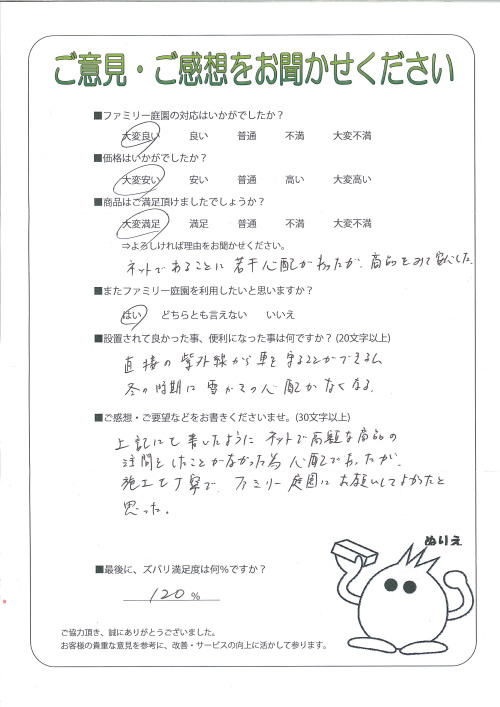 ご意見・ご感想をお聞かせください
■ファミリー庭園の対応はいかがでしたか？
大変良い 良い 普通 不満 大変不満
■価格はいかがでしたか？
大変安い 安い 普通 高い 大変高い
■商品はご満足頂けましたでしょうか？
大変満足 満足 普通 不満 大変不満
⇒よろしければ理由をお聞かせください。
ネットであることに若干心配があったが、商品をみて安心した。
■またファミリー庭園を利用したいと思いますか？
はい どちらとも言えない いいえ
■設置されて良かった事、便利になった事は何ですか？(20文字以上)
直接の紫外線から車を守ることができるし
冬の時期に雪かきの心配がなくなる。
■ご感想・ご要望などをお書きくださいませ。(30文字以上)
上記にも書いたように ネットで高額な商品の
注文をしたことがなかった為 心配であったが、
施工も丁寧で、ファミリー庭園にお願いしてよかったと
思った。
ぬりえ
■最後に、ズバリ満足度は何％ですか？
120 %
ご協力頂き、誠にありがとうございました。
お客様の貴重な意見を参考に、改善・サービスの向上に活かして参ります。